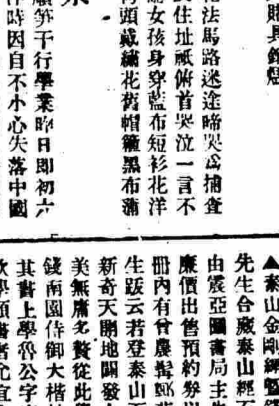 賭具銷燬
花法馬路迷途啼哭爲捕查
其住址祇俯首哭泣一言不
女孩身穿藍布短衫花洋
頭戴繡花舊帽籠黑布蒲
笋干行學業昨日即初六
時因自不小心失落中國
▲泰山金剛經
先生合藏泰山經
由震亞圖書局主
廉價出售預約券
册內有曾農髯鄭
生跋云若登泰山
新奇天開地闢發
美無庸多贅從此
錢南園侍御大楷
其書上學魯公字
欲學顏書者尤宜